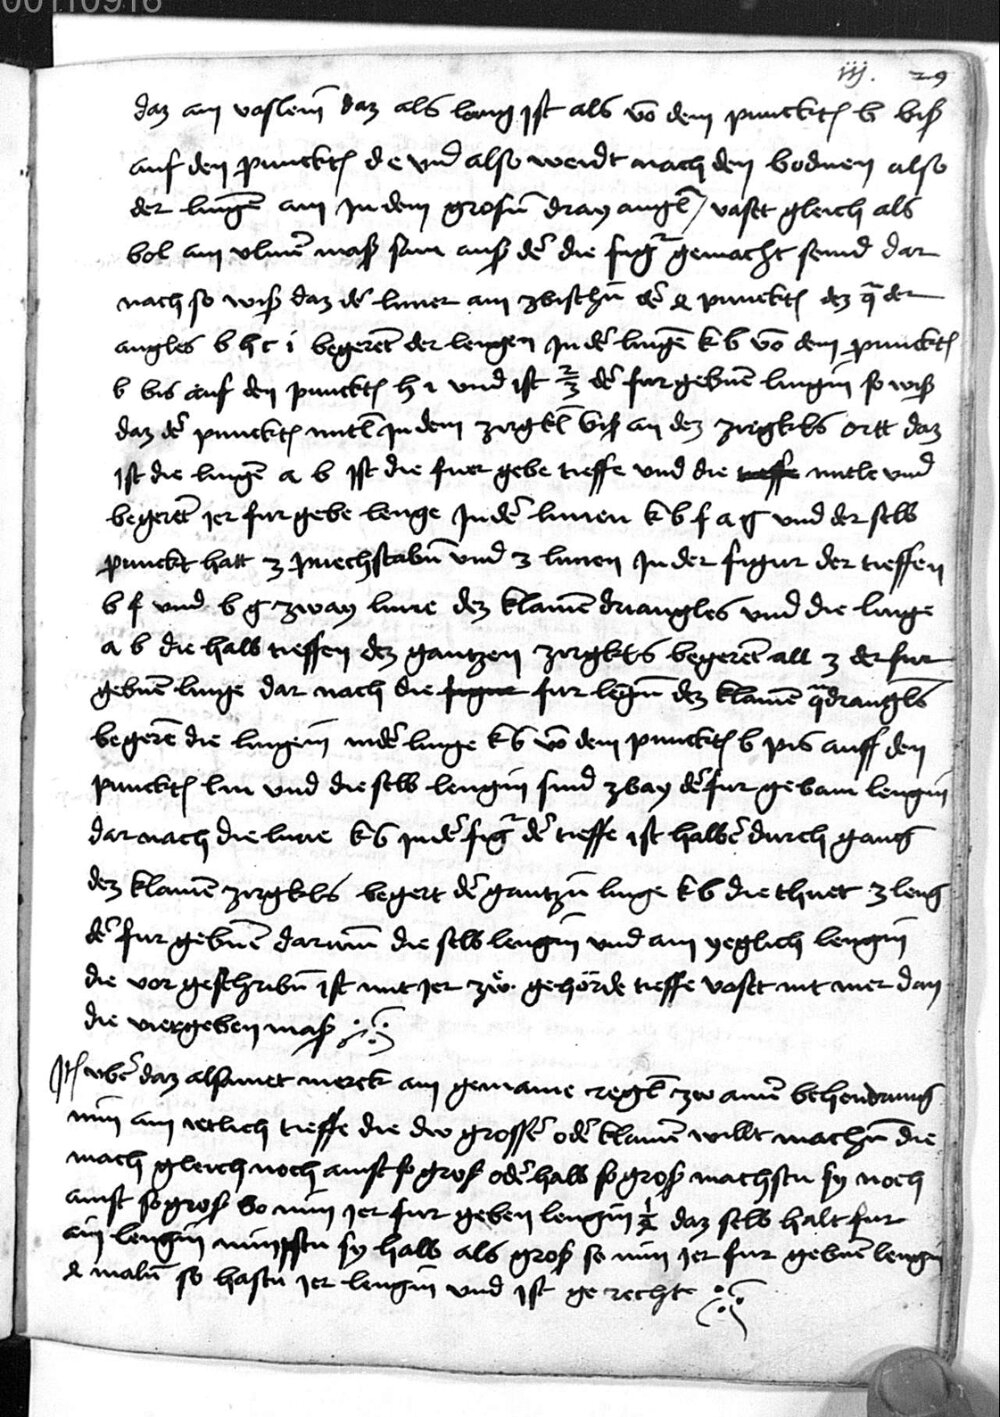 00110918
iij. 29
daz ain vaslein daz als lang ist als vō dem punckt b bis
auf den punckt d e vnd also werdt nach den bodmen also
der lingē ain In dem grosen drayangl / vast gleich als
bol ain vlmer mas sam aus dē die figr gemacht seind dar
nach so wiß daz dē liner ain zbischn dē punckt dez qͣder
angles b h c i begeret der lengen In dē lingē k b vō dem punckt
b bis auf den punckt h i vnd ist 2/3 dē furgebnē lingin so wiß
daz dē punckt mitl In dem zirgkl bis an dez zirgkls ortt daz
ist die lingē a b ist die fuer gebe tieffe vnd die mitle vnd
begeret ier fur gebe lenge In dē linien k b f a g vnd der selb
punckt hatt 3 puechstabn vnd 3 linien In der figur der tieffen
b f vnd b g zway linie dez klainē driangles vnd die linge
a b die halb tieffen dez gantzen zirgkls begeret all 3 der fur
gebnē linge dar nach die fur lengin dez klainē qͣdrangls
begerē die lingein inder linge k b vō dem punckt b pis auff den
punckt l m vnd die selb lengin sind zbay dē fur gebain lengin
dar nach die linie k b in dē figr dē tieffe ist halbē durch gang
dez klainē zirgkls begert dē gantzn linge k b die thuet 3 leng
dē fur gebnē darumb die selb lengin vnd ain yeglich lengin
die vor geschribn ist mit ier zw gehörde tieffe vast nit mer dan
die viergeben mas
Itē vbē daz alsamet merck ain gemaine regl zw ainē behendung
nim ain ietlich tieffe die dw grossē odē klainē willt machn die
mach gleich noch ainst so gros odē halb so gros machstu sy noch
ainst so gros So nim ier fur geben lengin 1/2 daz selb halt fur
ain lengin nimpstu sy halb als gros so nim ier fur gebnē lengin
maln so hastu ier lengin vnd ist ge recht